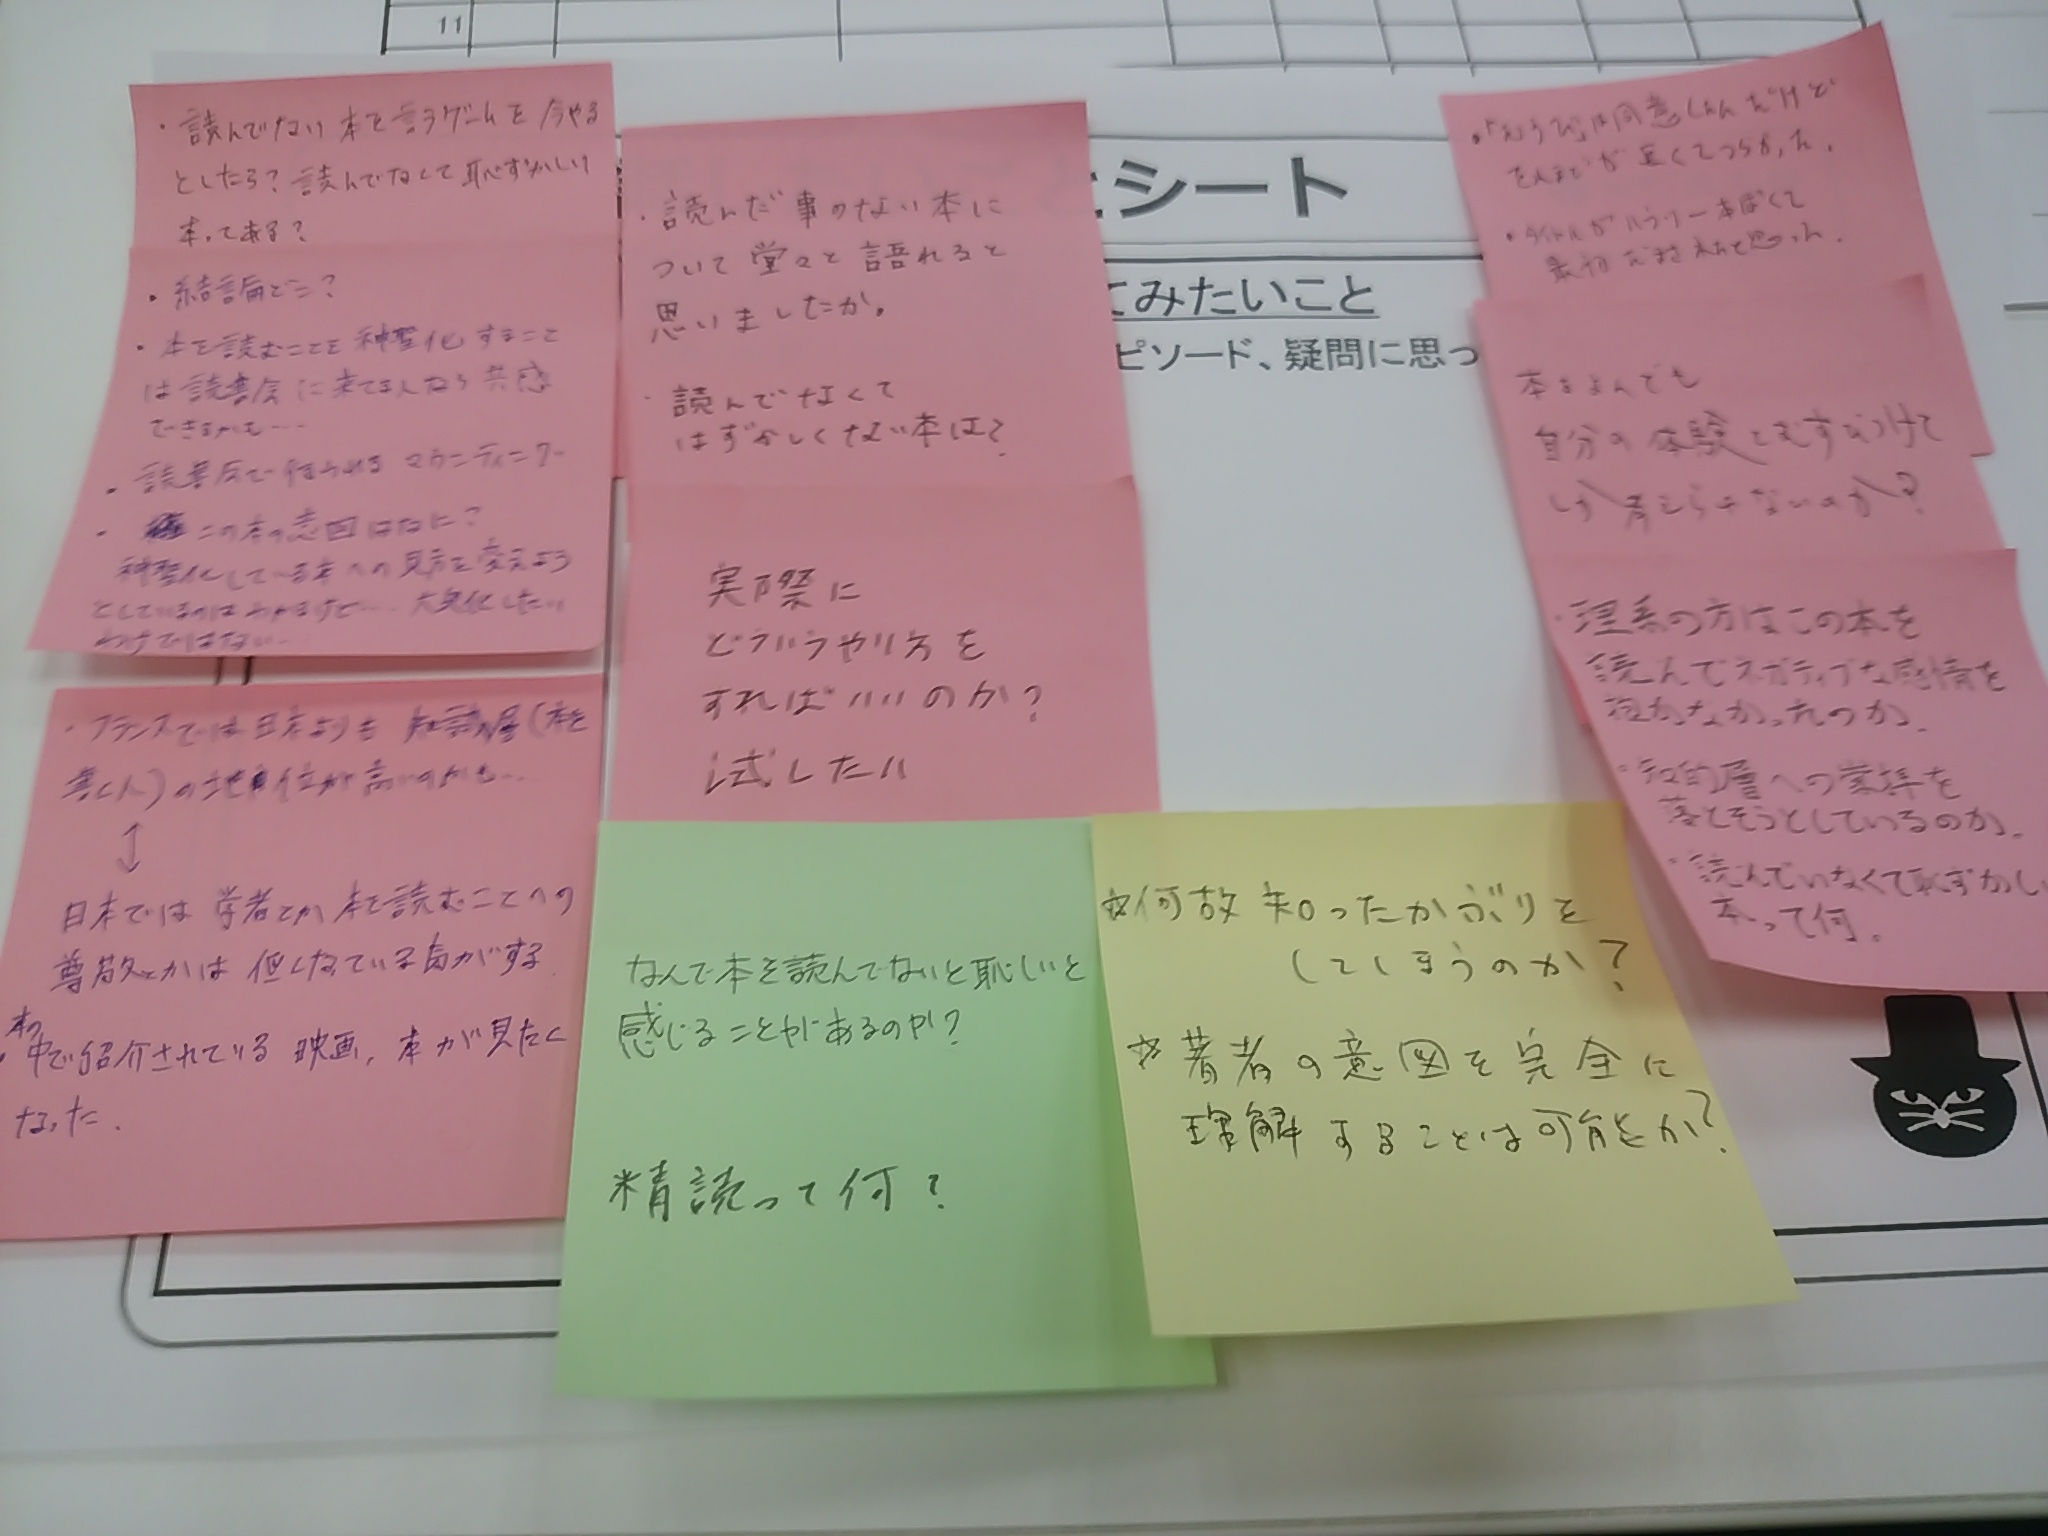 11
・読んでない本を言うゲームを今やる
としたら?読んでなくて恥ずかしい
本ってある?
・結論どこ?
・本を読むことを神聖化すること
は読書会に来てる人なら共感
できるかも…
・読書会で行われるマウンティング
・この本の意図はなに?
神聖化している本への見方を変えよう
としているのはわかるけど…大衆化したい
わけではない…
・フランスでは日本よりも知識層(本を
書く人)の地位が高いのかも…
↕
日本では学者とか本を読むことへの
尊敬とかは低しなっている気がする
・本の中で紹介されている映画、本が見たく
なった.
・読んだ事のない本に
ついて堂々と語れると
思いましたか。
・読んでなくて
はずかしくない本は?
実際に
どういうやり方を
すればいいのか?
試したい
なんで本を読んでないと恥しいと
感じることがあるのか?
精読って何?
☆何故知ったかぶりを
してしまうのか?
☆著者の意図を完全に
理解することは可能か?
シート
てみたいこと
ピソード、疑問に思っ
は同意くんだけど
が長くてつらかった.
・タイトルがハウツー本ぽくて
最初だまされたと思った.
本をよんでも
自分の体験とむすびつけて
しか考えられないのか?
・理系の方はこの本を
読んでネガティブな感情を
抱かなかったのか.
・知的層への崇拝を
落とそうとしているのか.
・読んでいなくて恥ずかしい
本って何.